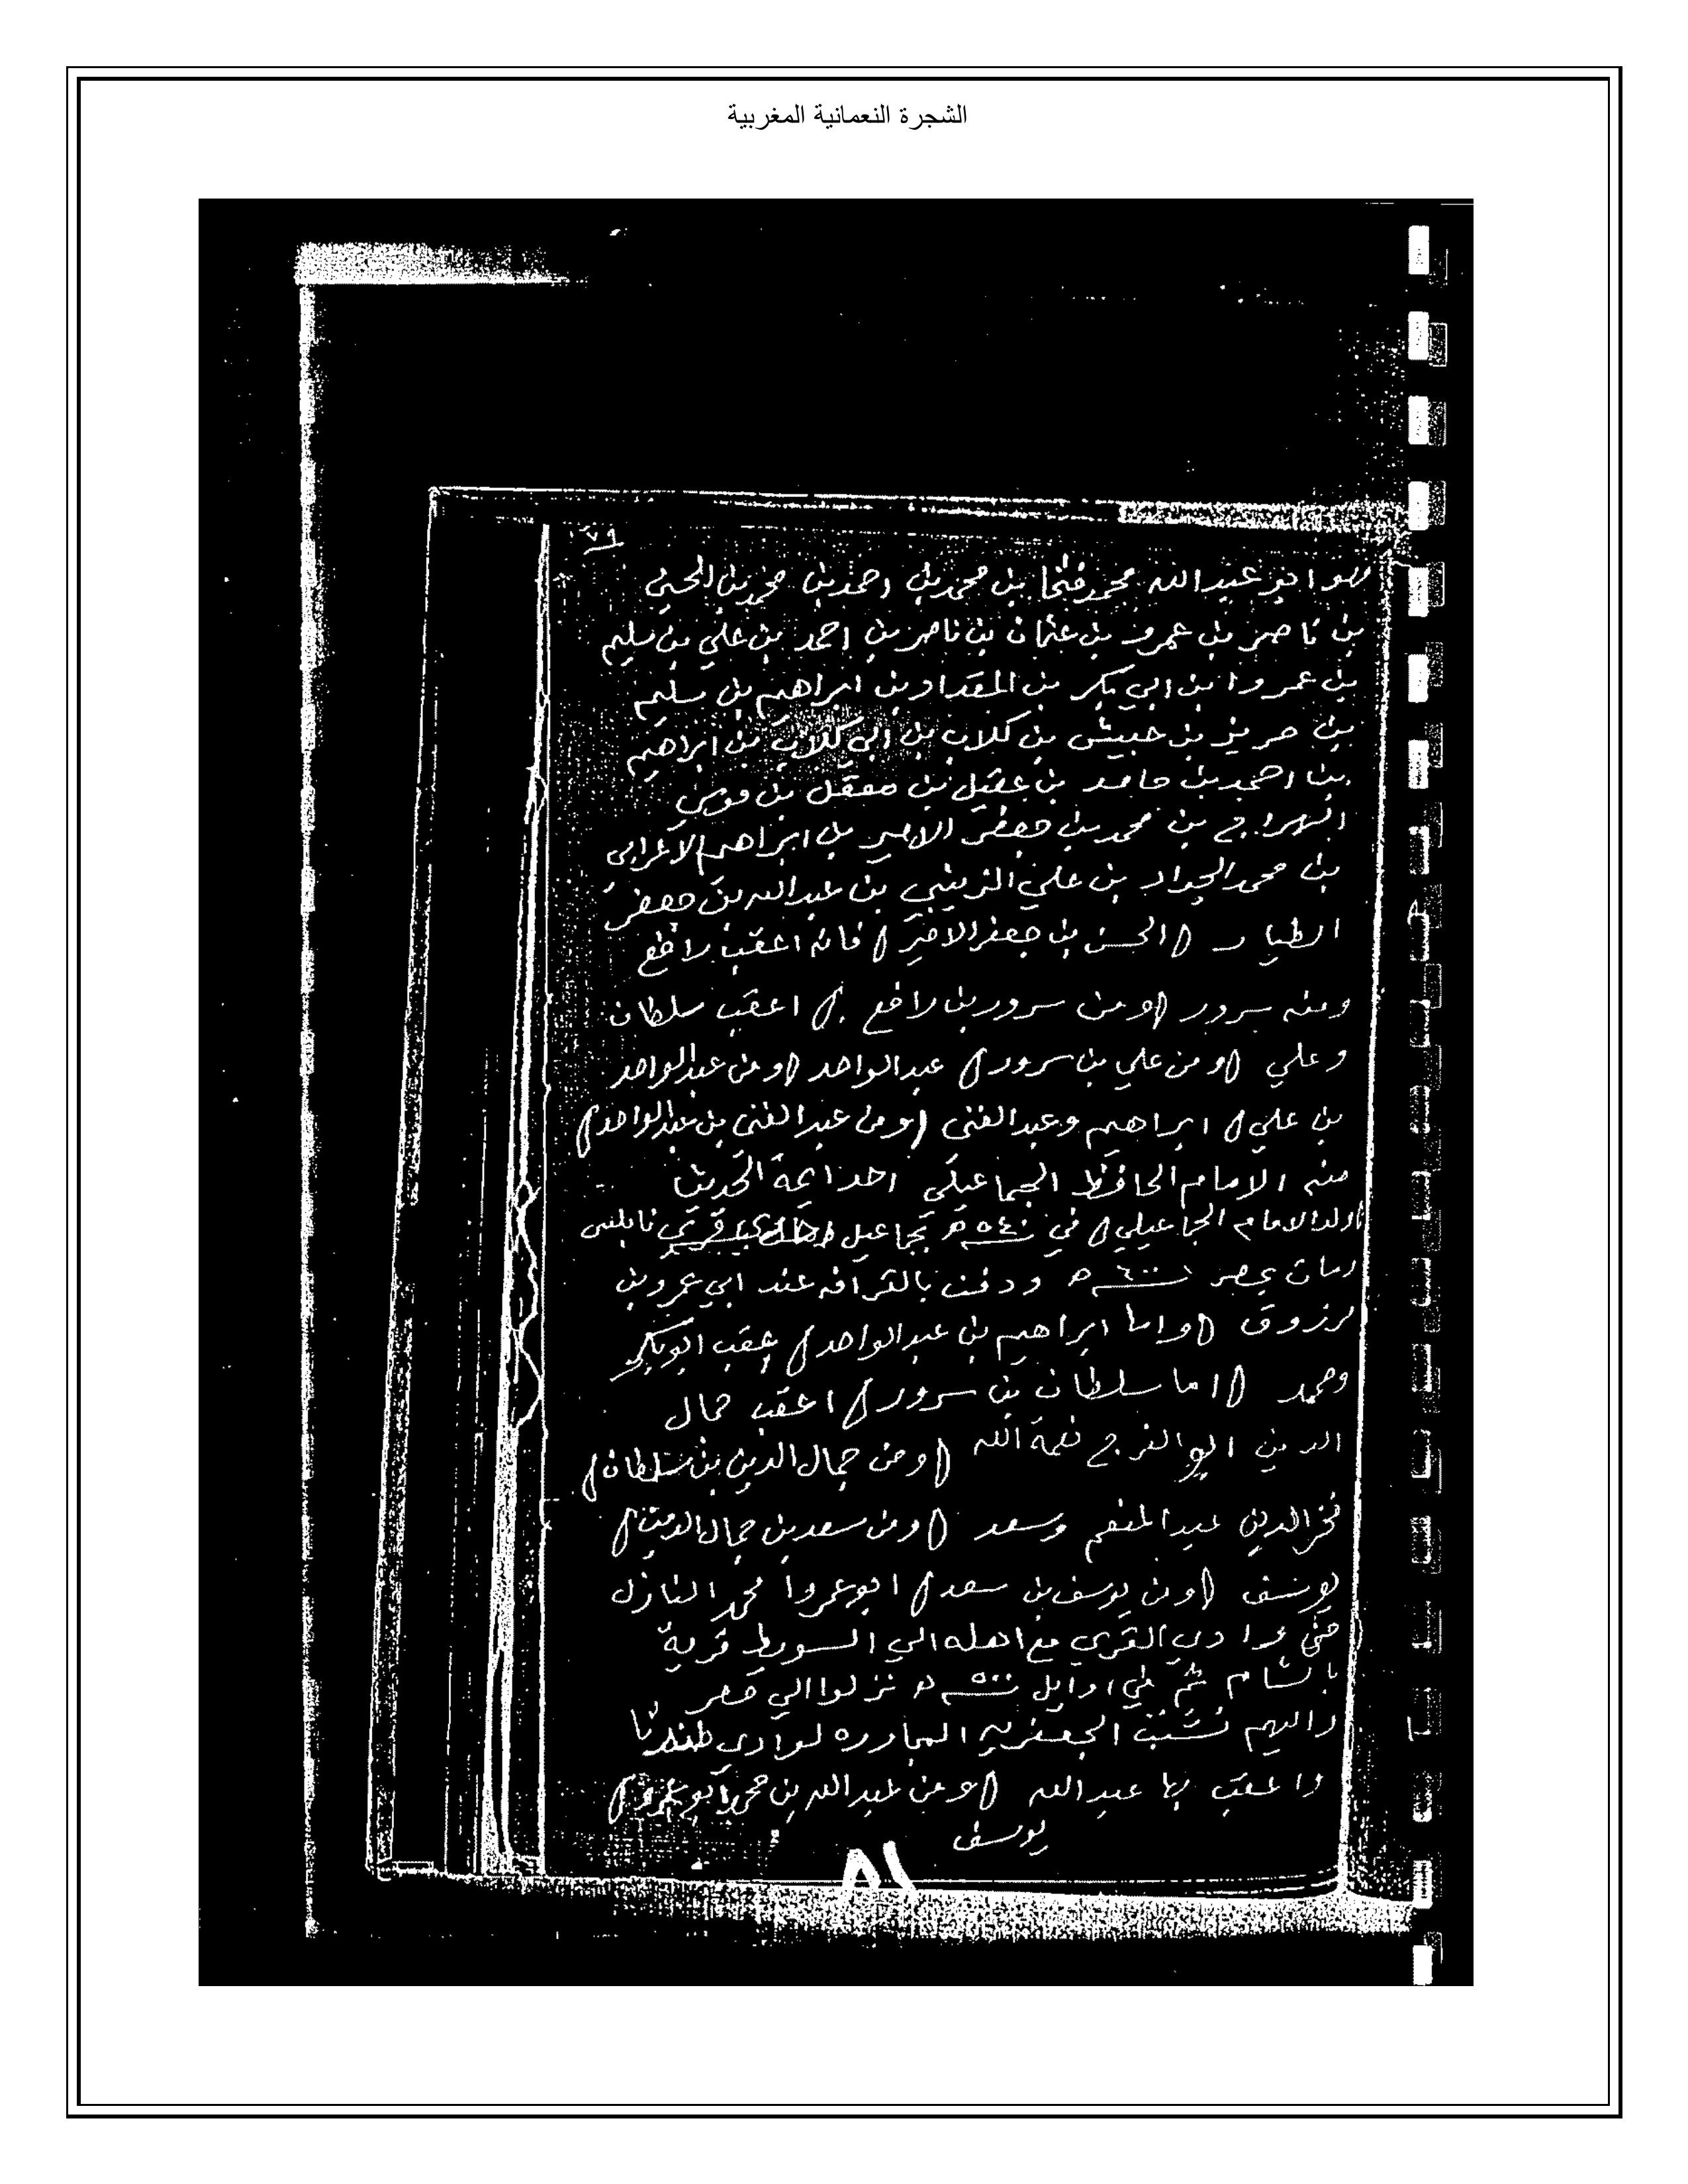 الشجرة النعمانية المغربية
٧٩
فهو ابو عبد الله محمد فتحا بن محمد بن احمد بن محمد بن الحسين
بن ناصر بن عمرو بن عثمان بن ناصر بن احمد بن علي بن سليم
بن عمروا بن ابي بكر بن المقداد بن ابراهيم بن سليم
بن حريز بن حبيش بن كلاب بن ابي كلاب بن ابراهيم
بن احمد بن حامد بن عقيل بن معقل بن
الهراج بن محمد بن جعفر الامير بن ابراهيم الاعرابي
بن محمد الجواد بن علي الزينبي بن عبد الله بن جعفر
الطيار (الحسن بن جعفر الامير) فانه اعقب رافع
ومنه سرور (ومن سرور بن رافع) اعقب سلطان
وعلي (ومن علي بن سرور) عبد الواحد (ومن عبد الواحد
بن علي) ابراهيم وعبد الغني (ومن عبد الغني بن عبد الواحد)
منه الامام الحافظ الجماعيلي احد ايمة الحديث
(ولد الامام الجماعيلي) في ٥٤٠ ه بجماعيل قري نابلس
ومات بمصر ٦٠٠ ه ودفن بالقرافه عند ابي عمرو بن
مرزوق (واما ابراهيم بن عبد الواحد) عقب ابو بكر
ومحمد (اما سلطان بن سرور) اعقب جمال
الدين ابو الفرج نعمة الله (ومن جمال الدين بن سلطان)
فخر الدين عبد المنعم وسعد (ومن سعد بن جمال الدين)
يوسف (ومن يوسف بن سعد) ابو عمروا محمد النازل
من وادي القري مع اهله الي السويط قرية
بالشام ثم في اوايل ٥٠٠ ه نزلوا الي مصر
واليهم نسبت الجعفريه المجاوره لوادي طندتا
واعقب بها عبد الله (ومن عبد الله بن محمد ابو عمرو)
يوسف
٨١